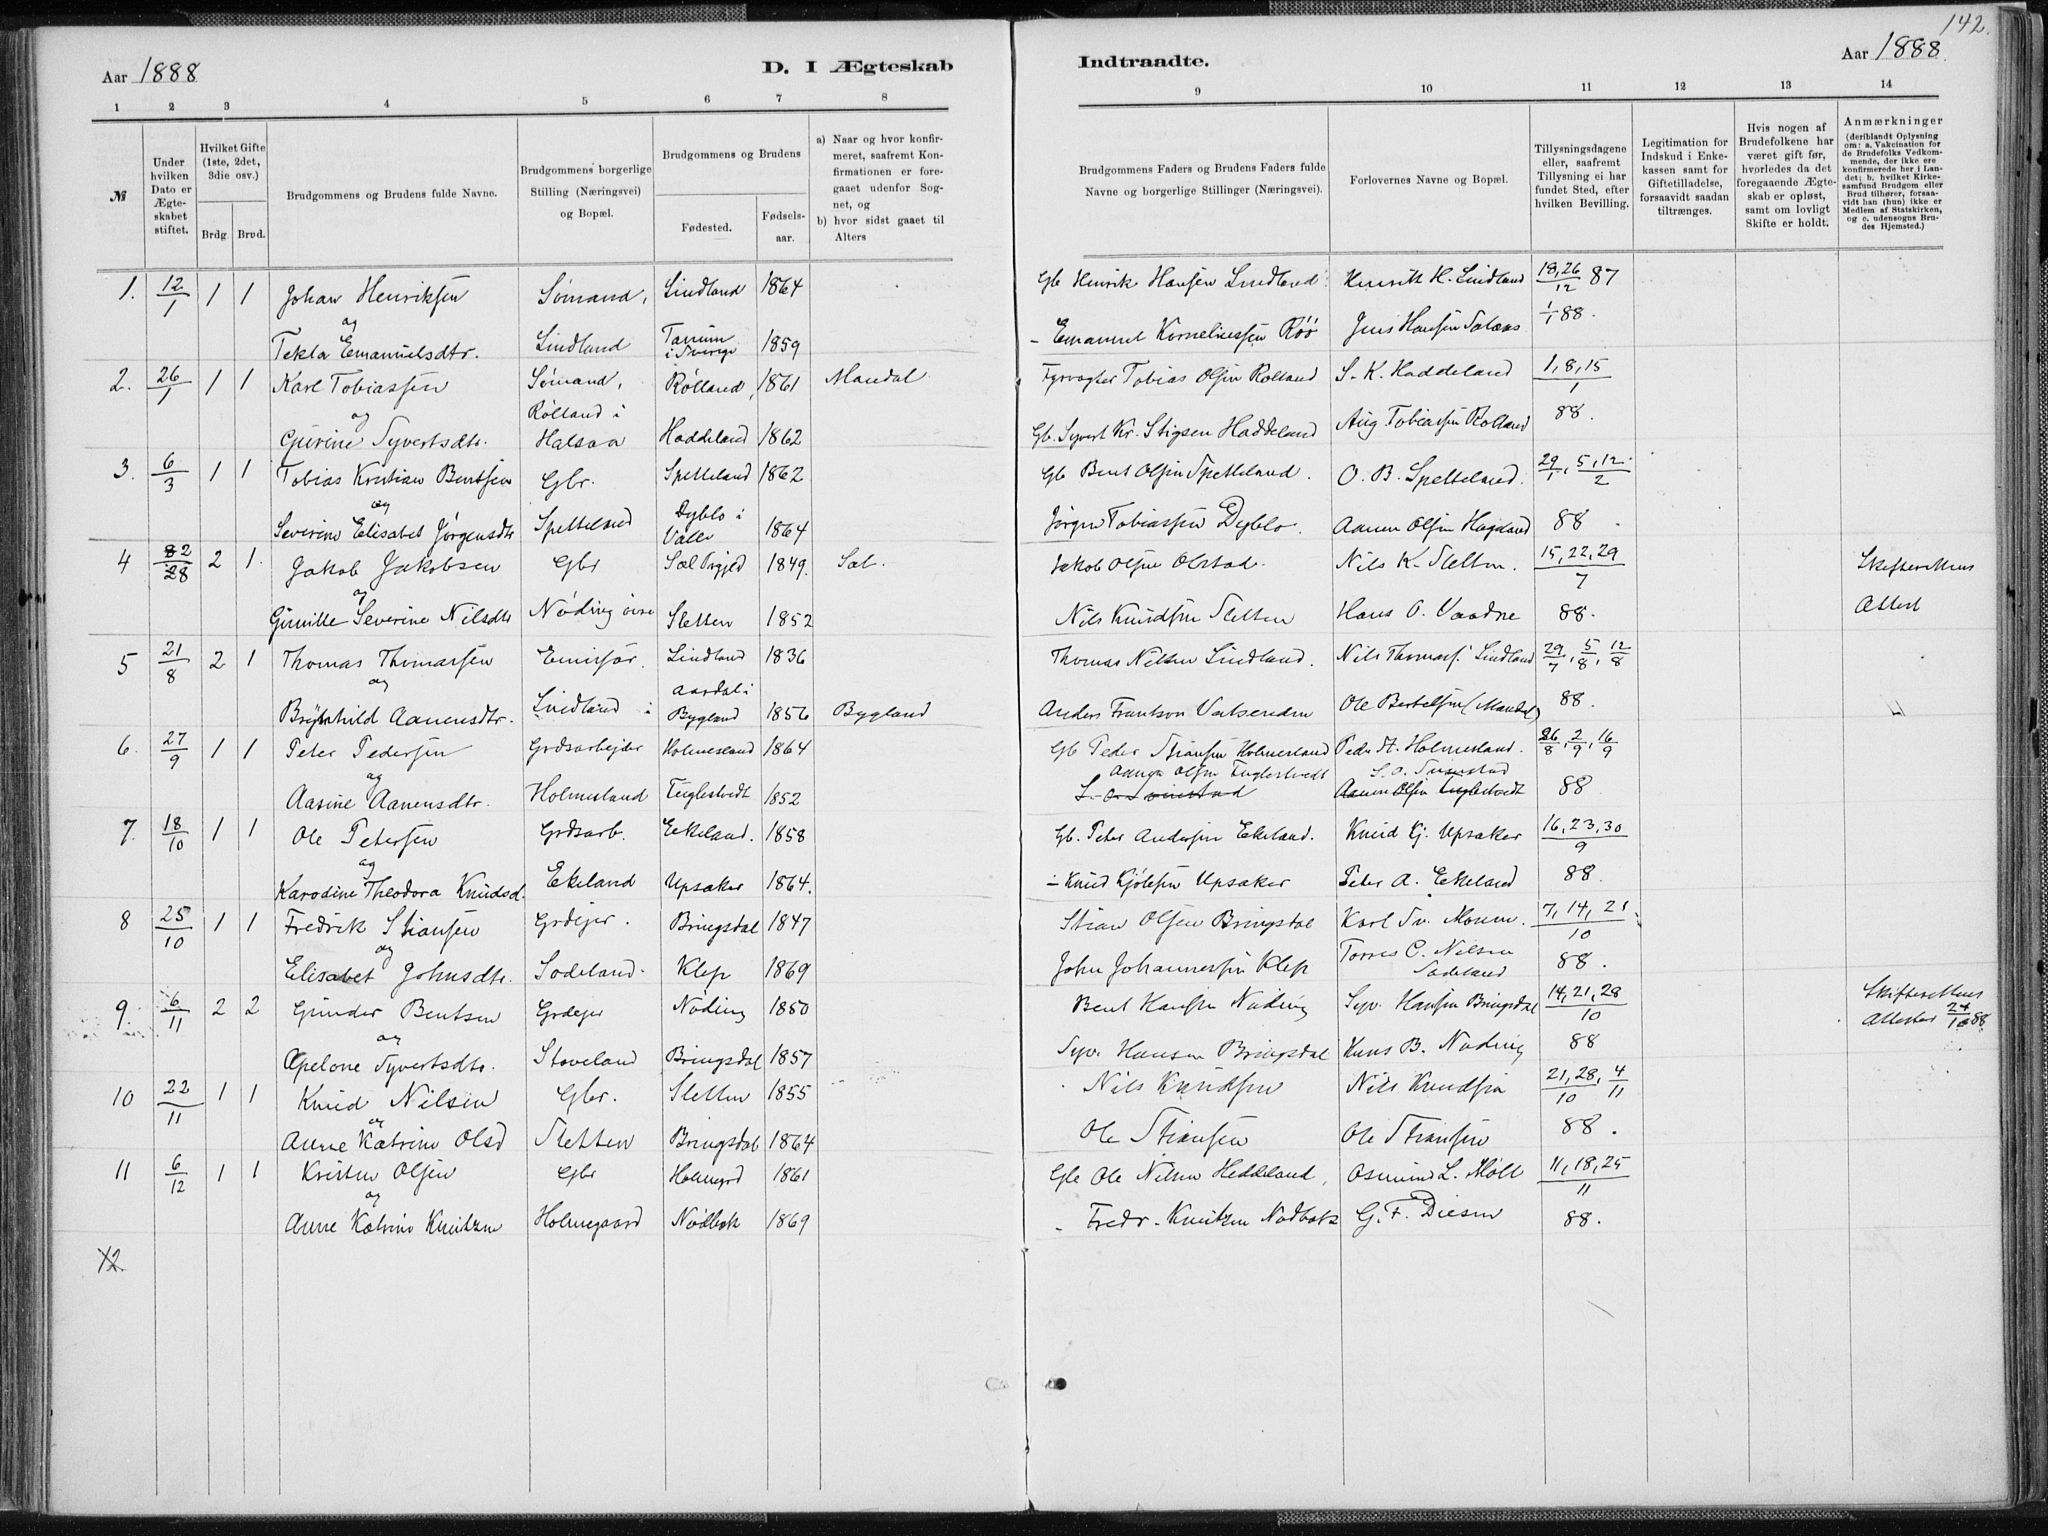 142.
Aar 1888
D. I Ægteskab
Indtraadte.
Aar 1888.
1 2 3 4 5 6 7 8 9 10 11 12 13 14
№
Under hvilken Dato er Ægteskabet stiftet.
Hvilket Gifte (1ste, 2det, 3die osv.)
Brdg. Brud.
Brudgommens og Brudens fulde Navne.
Brudgommens borgerlige Stilling (Næringsvei) og Bopæl.
Brudgommens og Brudens
Fødested.
Fødselsaar.
a) Naar og hvor konfirmeret, saafremt Konfirmationen er foregaaet udenfor Sognet, og
b) hvor sidst gaaet til Alters
Brudgommens Faders og Brudens Faders fulde Navne og borgerlige Stillinger (Næringsvei).
Forlovernes Navne og Bopæl.
Tillysningsdagene eller, saafremt Tillysning ei har fundet Sted, efter hvilken Bevilling.
Legitimation for Indskud i Enkekassen samt for Giftetilladelse, forsaavidt saadan tiltrænges.
Hvis nogen af Brudefolkene har været gift før, hvorledes da det foregaaende Ægteskab er opløst, samt om lovligt Skifte er holdt.
Anmærkninger (deriblandt Oplysning om: a. Vakcination for de Brudefolks Vedkommende, der ikke ere konfirmerede her i Landet; b. hvilket Kirkesamfund Brudgom eller Brud tilhører, forsaavidt han (hun) ikke er Medlem af Statskirken, og c. udensogns Brudes Hjemsted.)
1. 12/1 1 1 Johan Henriksen Sømand, Lindland 1864 Gb Henrik Hansen Lindland Henrik H. Lindland 18, 26/12 87
og
Tekla Emanuelsdtr. Lindland Tanum i Sverige 1859 - Emanuel Korneliussen Röö Jens Hansen 1/1 88.
2. 26/1 1 1 Karl Tobiassen Sømand, Rølland, 1861 Mandal Fyrvogter Tobias Olsen Rølland S. K. Haddeland 1, 8, 15/1
og Rølland i
Gurine Syvertsdtr. Halsaa Haddeland 1862 Gb. Syvert Kr. Stigsen Haddeland Aug Tobiassen Rølland 88.
3. 6/3 1 1 Tobias Kristian Bentsen Gbr. Spetteland 1862 Gb Bent Olsen Spetteland. O. B. Spetteland. 29/1, 5, 12/2
og
Severine Elisabet Jørgensdtr Spetteland Dyblo i Valle 1864 Jörgen Tobiassen Dyblo. Aanen Olsen Hageland 88
4 2/8 2 1. Jakob Jakobsen Gbr 1849. Jakob Olsen Olstad. Nils K. Sletten. 15, 22, 29/7 Skifterettens
og
Gunille Severine Nilsdtr Nøding øvre Sletten 1852 Nils Knudsen Sletten Hans O. Vaadne 88. Attest
5 21/8 2 1 Thomas Thomassen Lindland 1836 Thomas Nilsen Lindland. Nils Thomass. Lindland 29/7, 5/8, 12/8
og
Brynhild Aanensdtr. Lindland i Aardal i Bygland 1856 Bygland Anders Ole Bertelsen (Mandal) 88.
6. 27/9 1 1 Peter Pedersen Grdsarbejder Holmesland 1864 Gb Peder Stiansen Holmesland Peder St. Holmesland. 26/8, 2/9, 16/9
og Aanen Olsen Fuglestvedt S. O. Svinstad
Aasine Aanensdtr. Holmesland Fuglestvedt 1852 S. O. Svinstad Aanen Olsen Fuglestvedt 88.
7. 18/10 1 1 Ole Petersen Grdsarb. Eekeland. 1858 Gb. Peter Andersen Ekeland. Knud Kj. Upsaker 16, 23, 30/9
og
Karodine Theodora Knudsd. Ekeland Upsaker 1864. - Knud Kjølsen Upsaker Peter A. Ekeland 88.
8 25/10 1 1 Fredrik Stiansen Grdejer. Bringsdal 1847 Stian Olsen Bringsdal Karl Sv. Moseu. 7, 14, 21/10
og
Elisabet Johnsdtr. Sodeland. Klep 1869 John Johannessen Klep Torres C. Nilsen Sodeland 88.
9. 6/11 2 2 Gunder Bentsen Grdejer Nöding 1850 Bent Hansen Nöding Syv. Hansen Bringsdal 14, 21, 28/10 Skifterettens
og
Apelone Syvertsdtr. Stoveland Bringsdal 1857 Syv. Hansen Bringsdal Hans B. Nöding 88 Attester 24/10 88
10 22/11 1 1 Knud Nilsen Gbr. Sletten 1855 Nils Knudsen Nils Knudsen 21, 28/10, 4/11
og
Anne Katrine Olsd Sletten Bringsdal 1864 Ole Stiansen Ole Stiansen 88.
11 6/12 1 1 Kristen Olsen Gbr Holmegrd 1861 Gb Ole Nilsen Heddeland, Osmund L. Möll 11, 18, 25/11
og
Anne Katrine Knutzen Holmegaard Nödbek 1869 - Fredr. Knutzen Nodbek G. F. Diesen 88.
12.